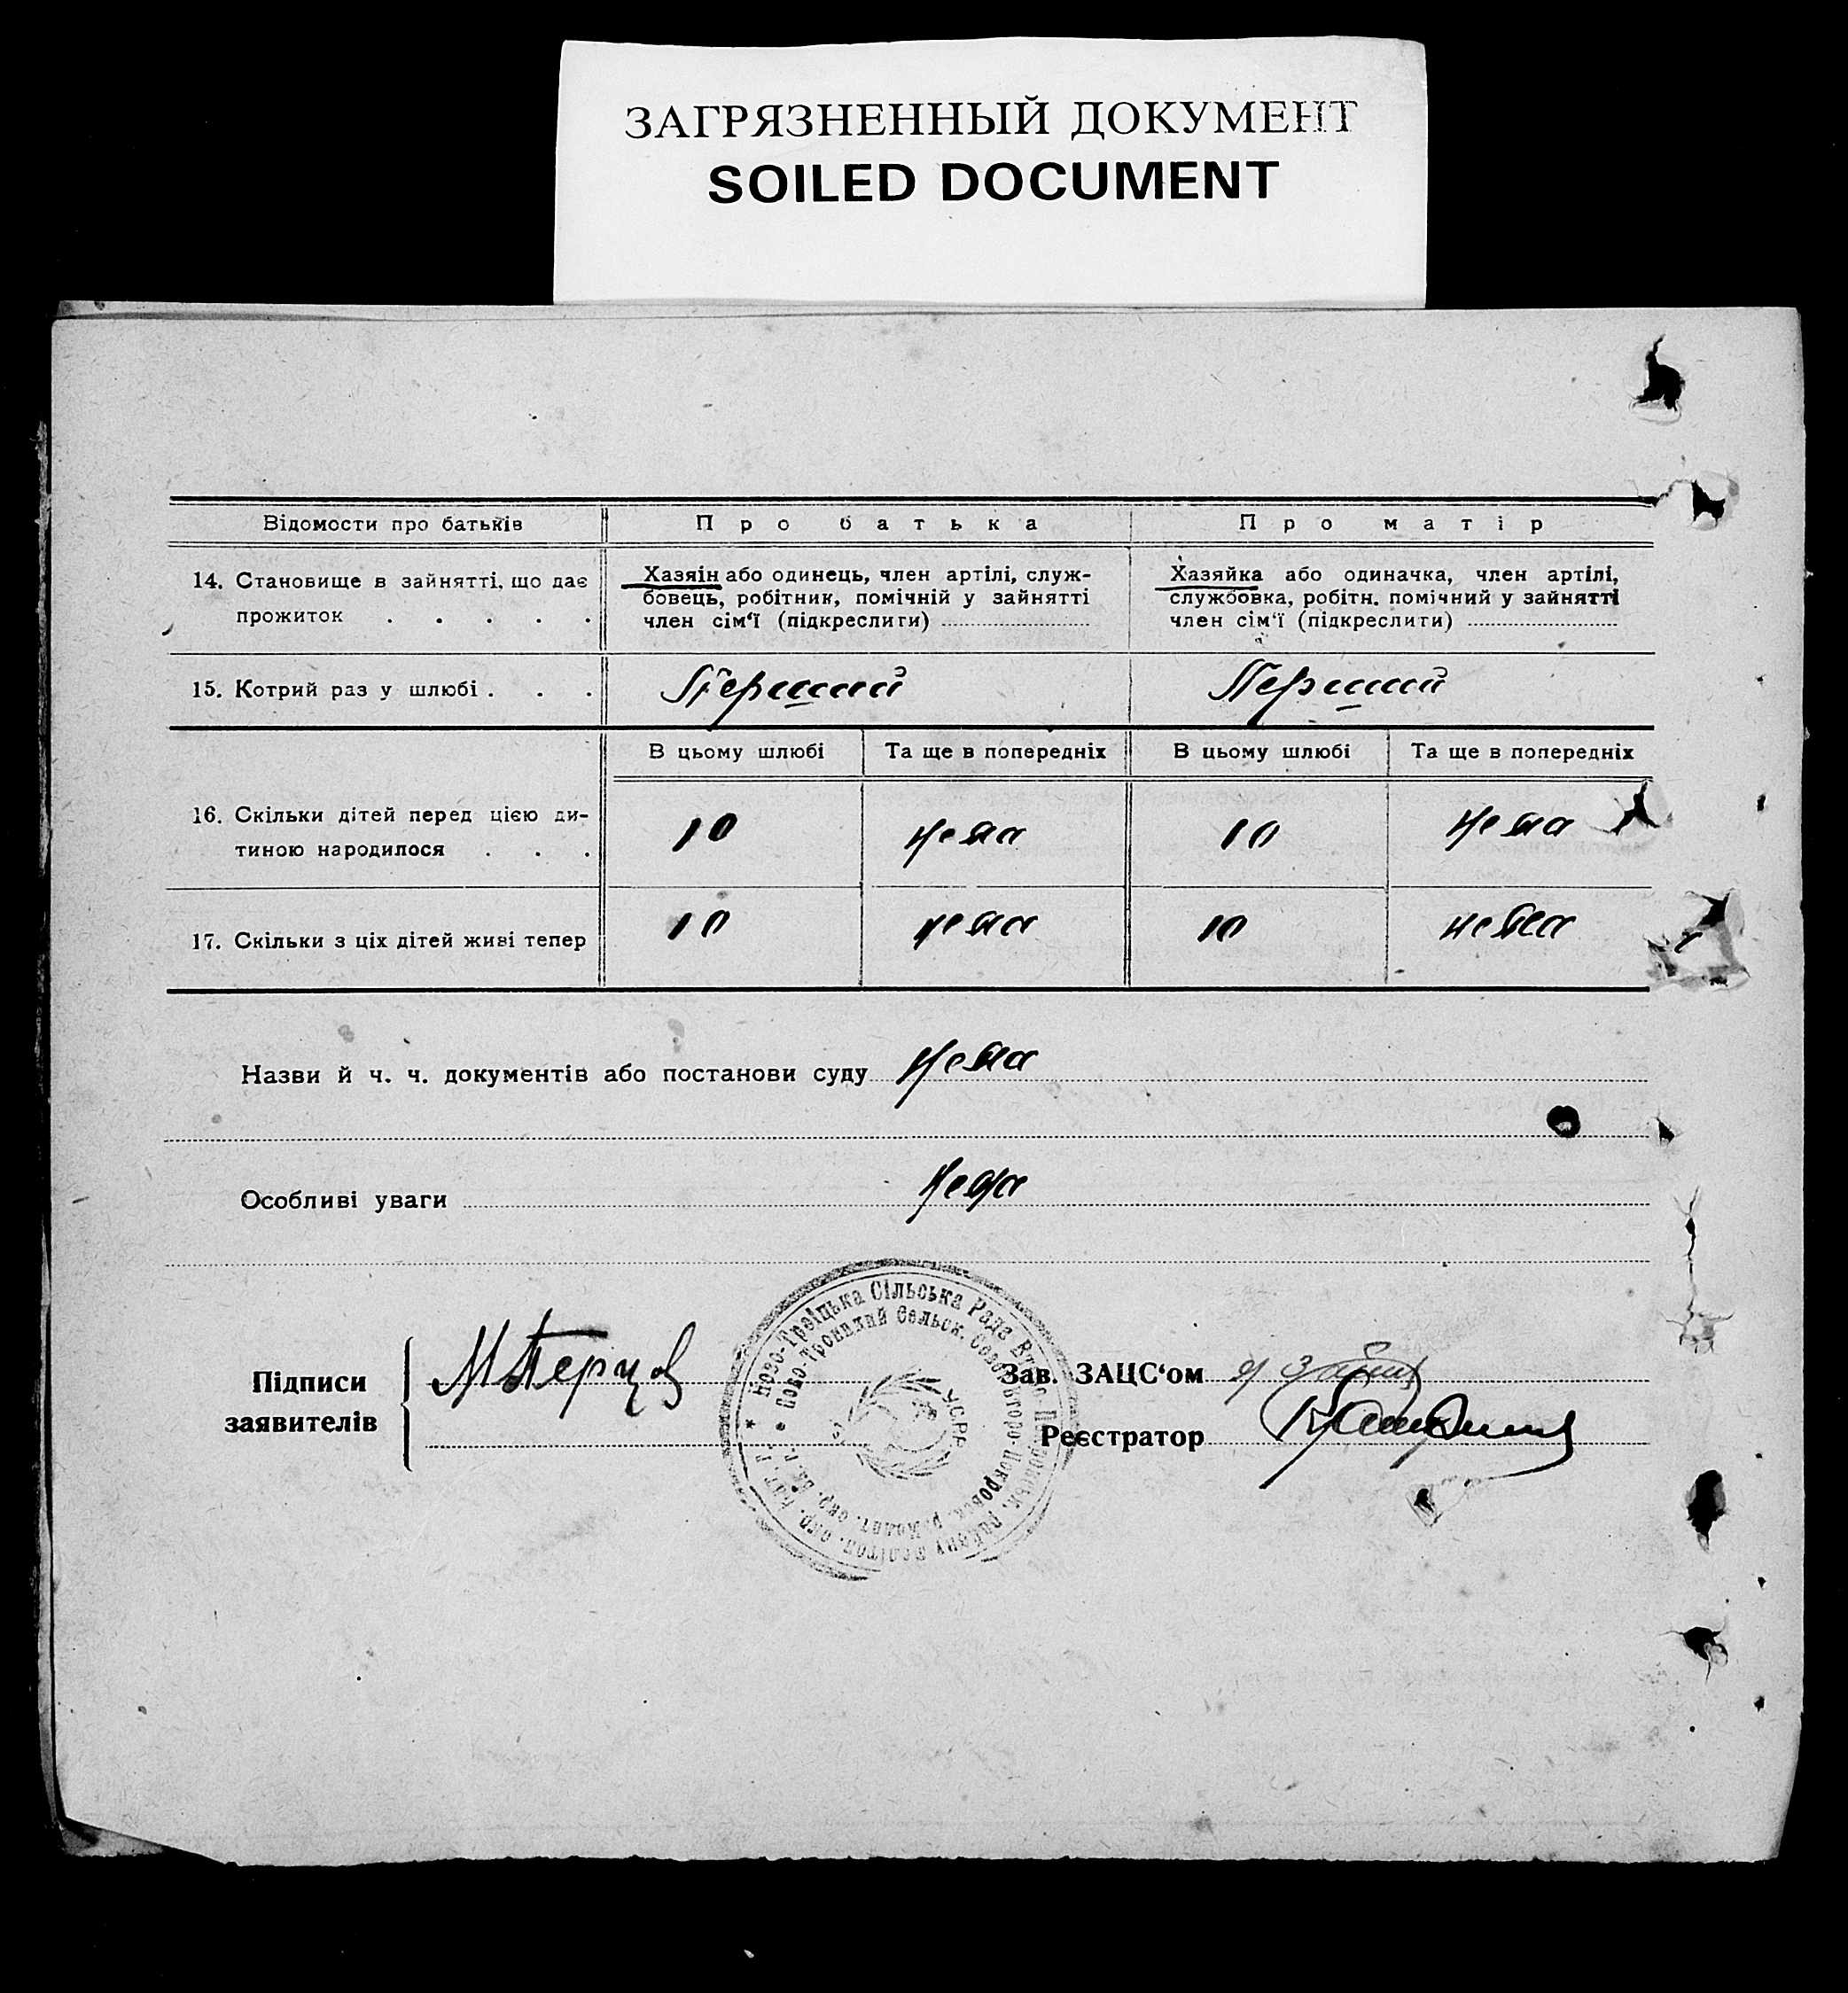 ЗАГРЯЗНЕННЫЙ ДОКУМЕНТ
SOILED DOCUMENT
Відомости про батьків Про батька Про матір
14. Становище в зайнятті, що дає прожиток . . . . .
Хазяін або одинець, член артілі, служ-
бовець, робітник, помічній у зайнятті
член сім‘ї (підкреслити)
Хазяйка або одиначка, член артілі,
службовка, робітн. помічний у зайнятті
член сім‘ї (підкреслити)
15. Котрий раз у шлюбі . . . Перший Перший
В цьому шлюбі Та ще в попередніх В цьому шлюбі Та ще в попередніх
16. Скільки дітей перед цією ди-
тиною народилося . . . 10 нема 10 нема
17. Скільки з ціх дітей живі тепер 10 нема 10 нема
Назви й ч. ч. документів або постанови суду нема
Особливі уваги нема
Підписи
заявителів
М Перцов
Зав. ЗАЦС‘ом
Реєстратор
Ново-Троїцька Сільська Рада
Сельск.
УСРР